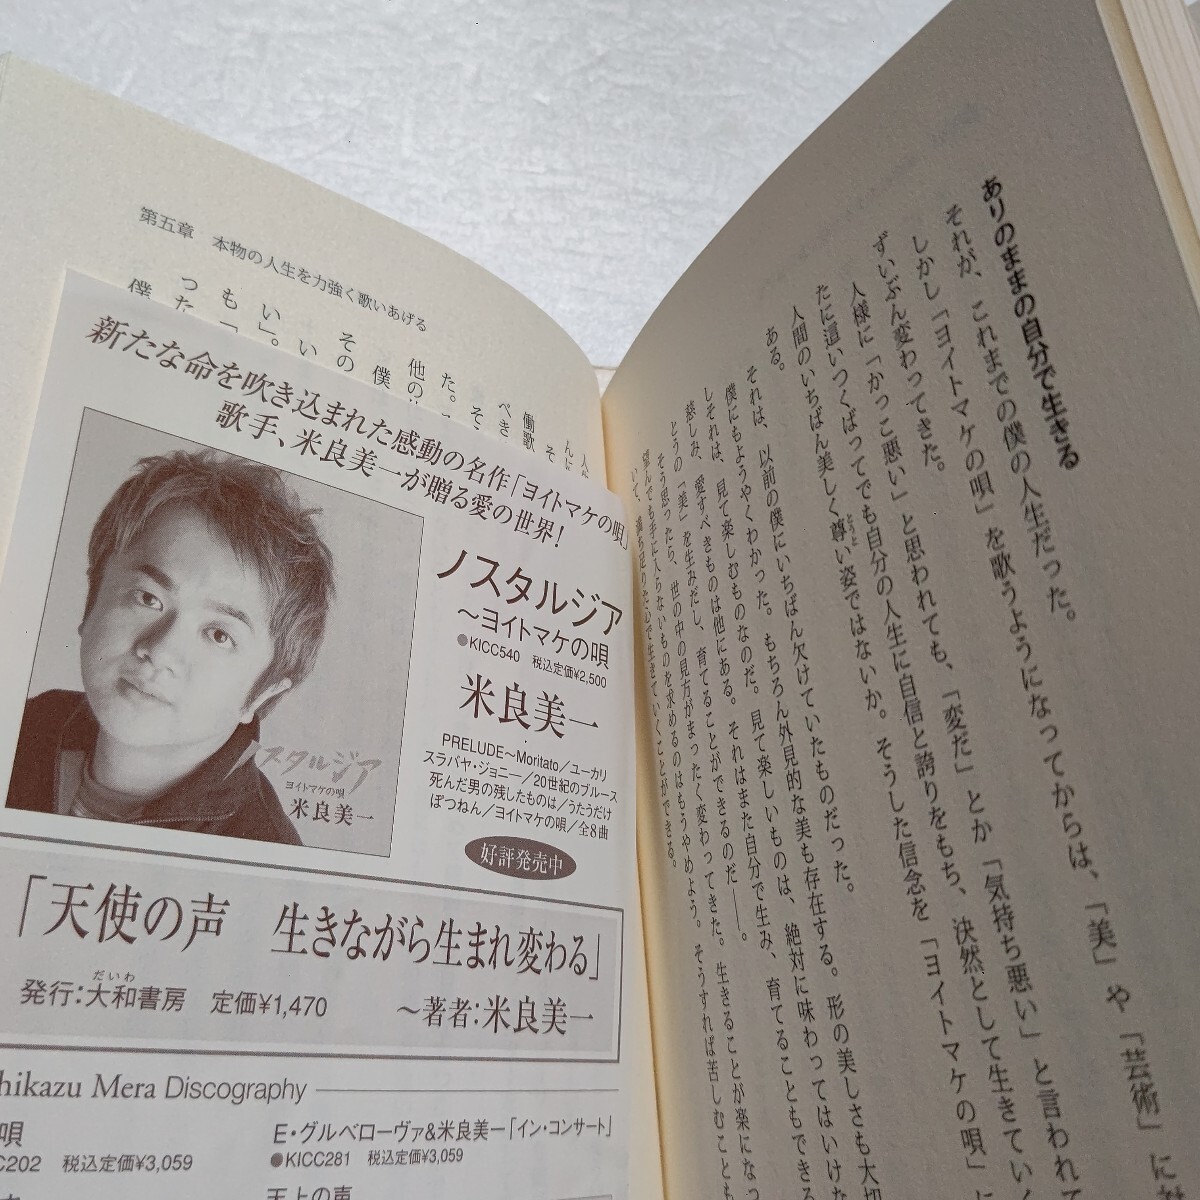 第五章　本物の人生を力強く歌いあげる
新たな命を吹き込まれた感動の名作「ヨイトマケの唄」
歌手、米良美一が贈る愛の世界!
ノスタルジア
〜ヨイトマケの唄
●KICC540　税込定価¥2,500
米良美一
PRELUDE〜Moritato／ユーカリ
スラバヤ・ジョニー／20世紀のブルース
死んだ男の残したものは／うたうだけ
ぽつねん／ヨイトマケの唄／全8曲
好評発売中
ノスタルジア
ヨイトマケの唄
米良美一
「天使の声　生きながら生まれ変わる」
発行:大和書房　定価¥1,470
だいわ
〜著者:米良美一
hikazu Mera Discography
唄
C202　税込定価¥3,059
E・グルベローヴァ&米良美一「イン・コンサート」
●KICC281　税込定価¥3,059
天上の声
ありのままの自分で生きる
それが、これまでの僕の人生だった。
しかし「ヨイトマケの唄」を歌うようになってからは、「美」や「芸術」に
ずいぶん変わってきた。
人様に「かっこ悪い」と思われても、「変だ」とか「気持ち悪い」と言われて
たに這いつくばってでも自分の人生に自信と誇りをもち、決然として生きてい
人間のいちばん美しく尊い姿ではないか。そうした信念を「ヨイトマケの唄」に
とうと
ある。
それは、以前の僕にいちばん欠けていたものだった。
僕にもようやくわかった。もちろん外見的な美も存在する。形の美しさも大切
しそれは、見て楽しむものなのだ。見て楽しいものは、絶対に味わってはいけな
慈しみ、愛すべきものは他にある。それはまた自分で生み、育てることもできる
とうの「美」を生みだし、育てることができるのだ――。
そう思ったら、世の中の見方がまったく変わってきた。生きることが楽になっ
望んでも手に入らないものを求めるのはもうやめよう。そうすれば苦しむことも
いて、満ち足りた心で生きていくことができる。